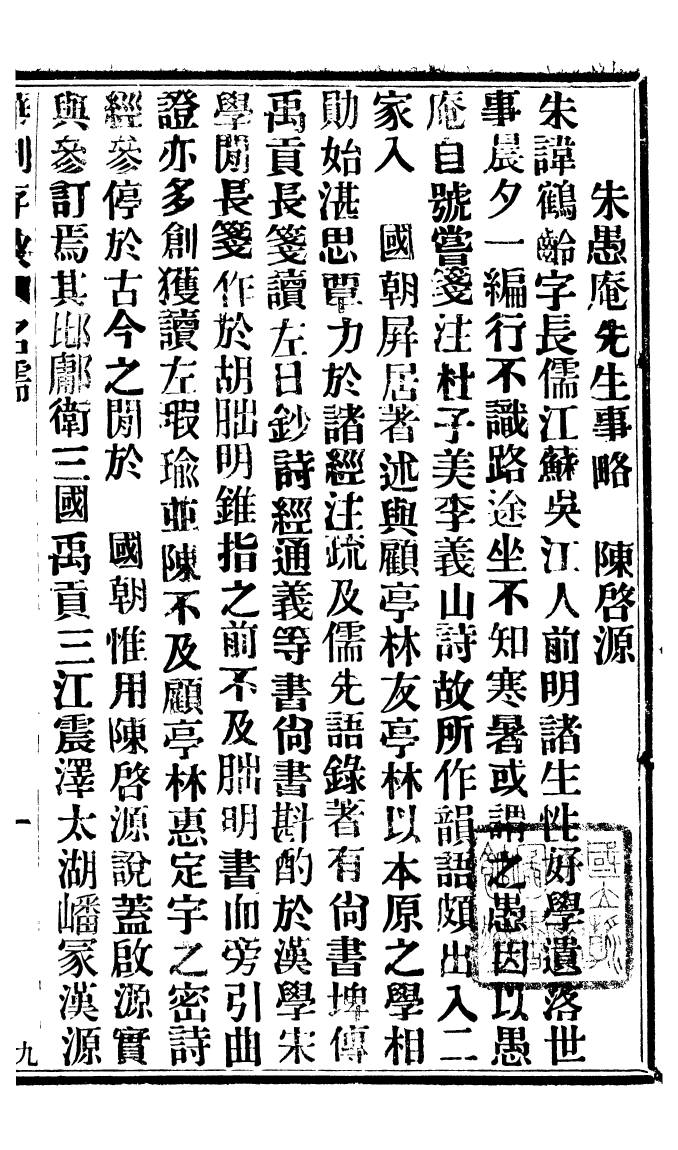 朱愚庵先生事略　陳啓源
朱諱鶴齡字長儒江蘇吳江人前明諸生性好學遺落世
事晨夕一編行不識路途坐不知寒暑或謂之愚因以愚
庵自號嘗箋注杜子美李義山詩故所作韻語頗出入二
家入　國朝屏居著述與顧亭林友亭林以本原之學相
勖始湛思覃力於諸經注疏及儒先語錄著有尙書埤傳
禹貢長箋讀左日鈔詩經通義等書尙書斟酌於漢學宋
學閒長箋作於胡朏明錐指之前不及朏明書而旁引曲
證亦多創獲讀左瑕瑜並陳不及顧亭林惠定宇之密詩
經參停於古今之閒於　國朝惟用陳啓源說蓋啟源實
與參訂焉其邶鄘衛三國禹貢三江震澤太湖嶓冢漢源
名儒
一
九